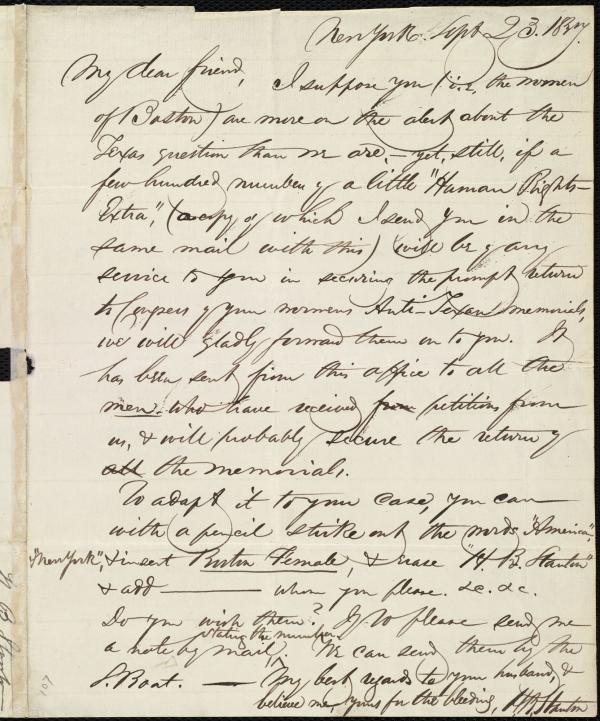 New York. Sept. 23. 1837.
My dear friend, I suppose you (i.e., the women
of Boston) are more on the alert about the
Texas question than we are, — yet, still, if a
few hundred number of a little "Human Rights—
Extra", (a copy of which I send you in the
same mail with this) will be of any
service to you in securing the prompt return
to Congress of your womens Anti-Texas memorials,
we will gladly forward them on to you. It
has been sent from this office to all the
men who have received from petitions from
us, & will probably secure the return of
all the memorials.
To adapt it to your case, you can
with a pencil strike out the words "America",
"New York", & insert Boston Female, & erase "H. B. Stanton"
& add ——— whom you please. &c. &c.
Do you wish them? If so please send me
a note by mail stating the number. We can send them by the
S. Boat. — My best regards to your husband, &
believe me, yours for the bleeding, H B Stanton
107
H B Stanton